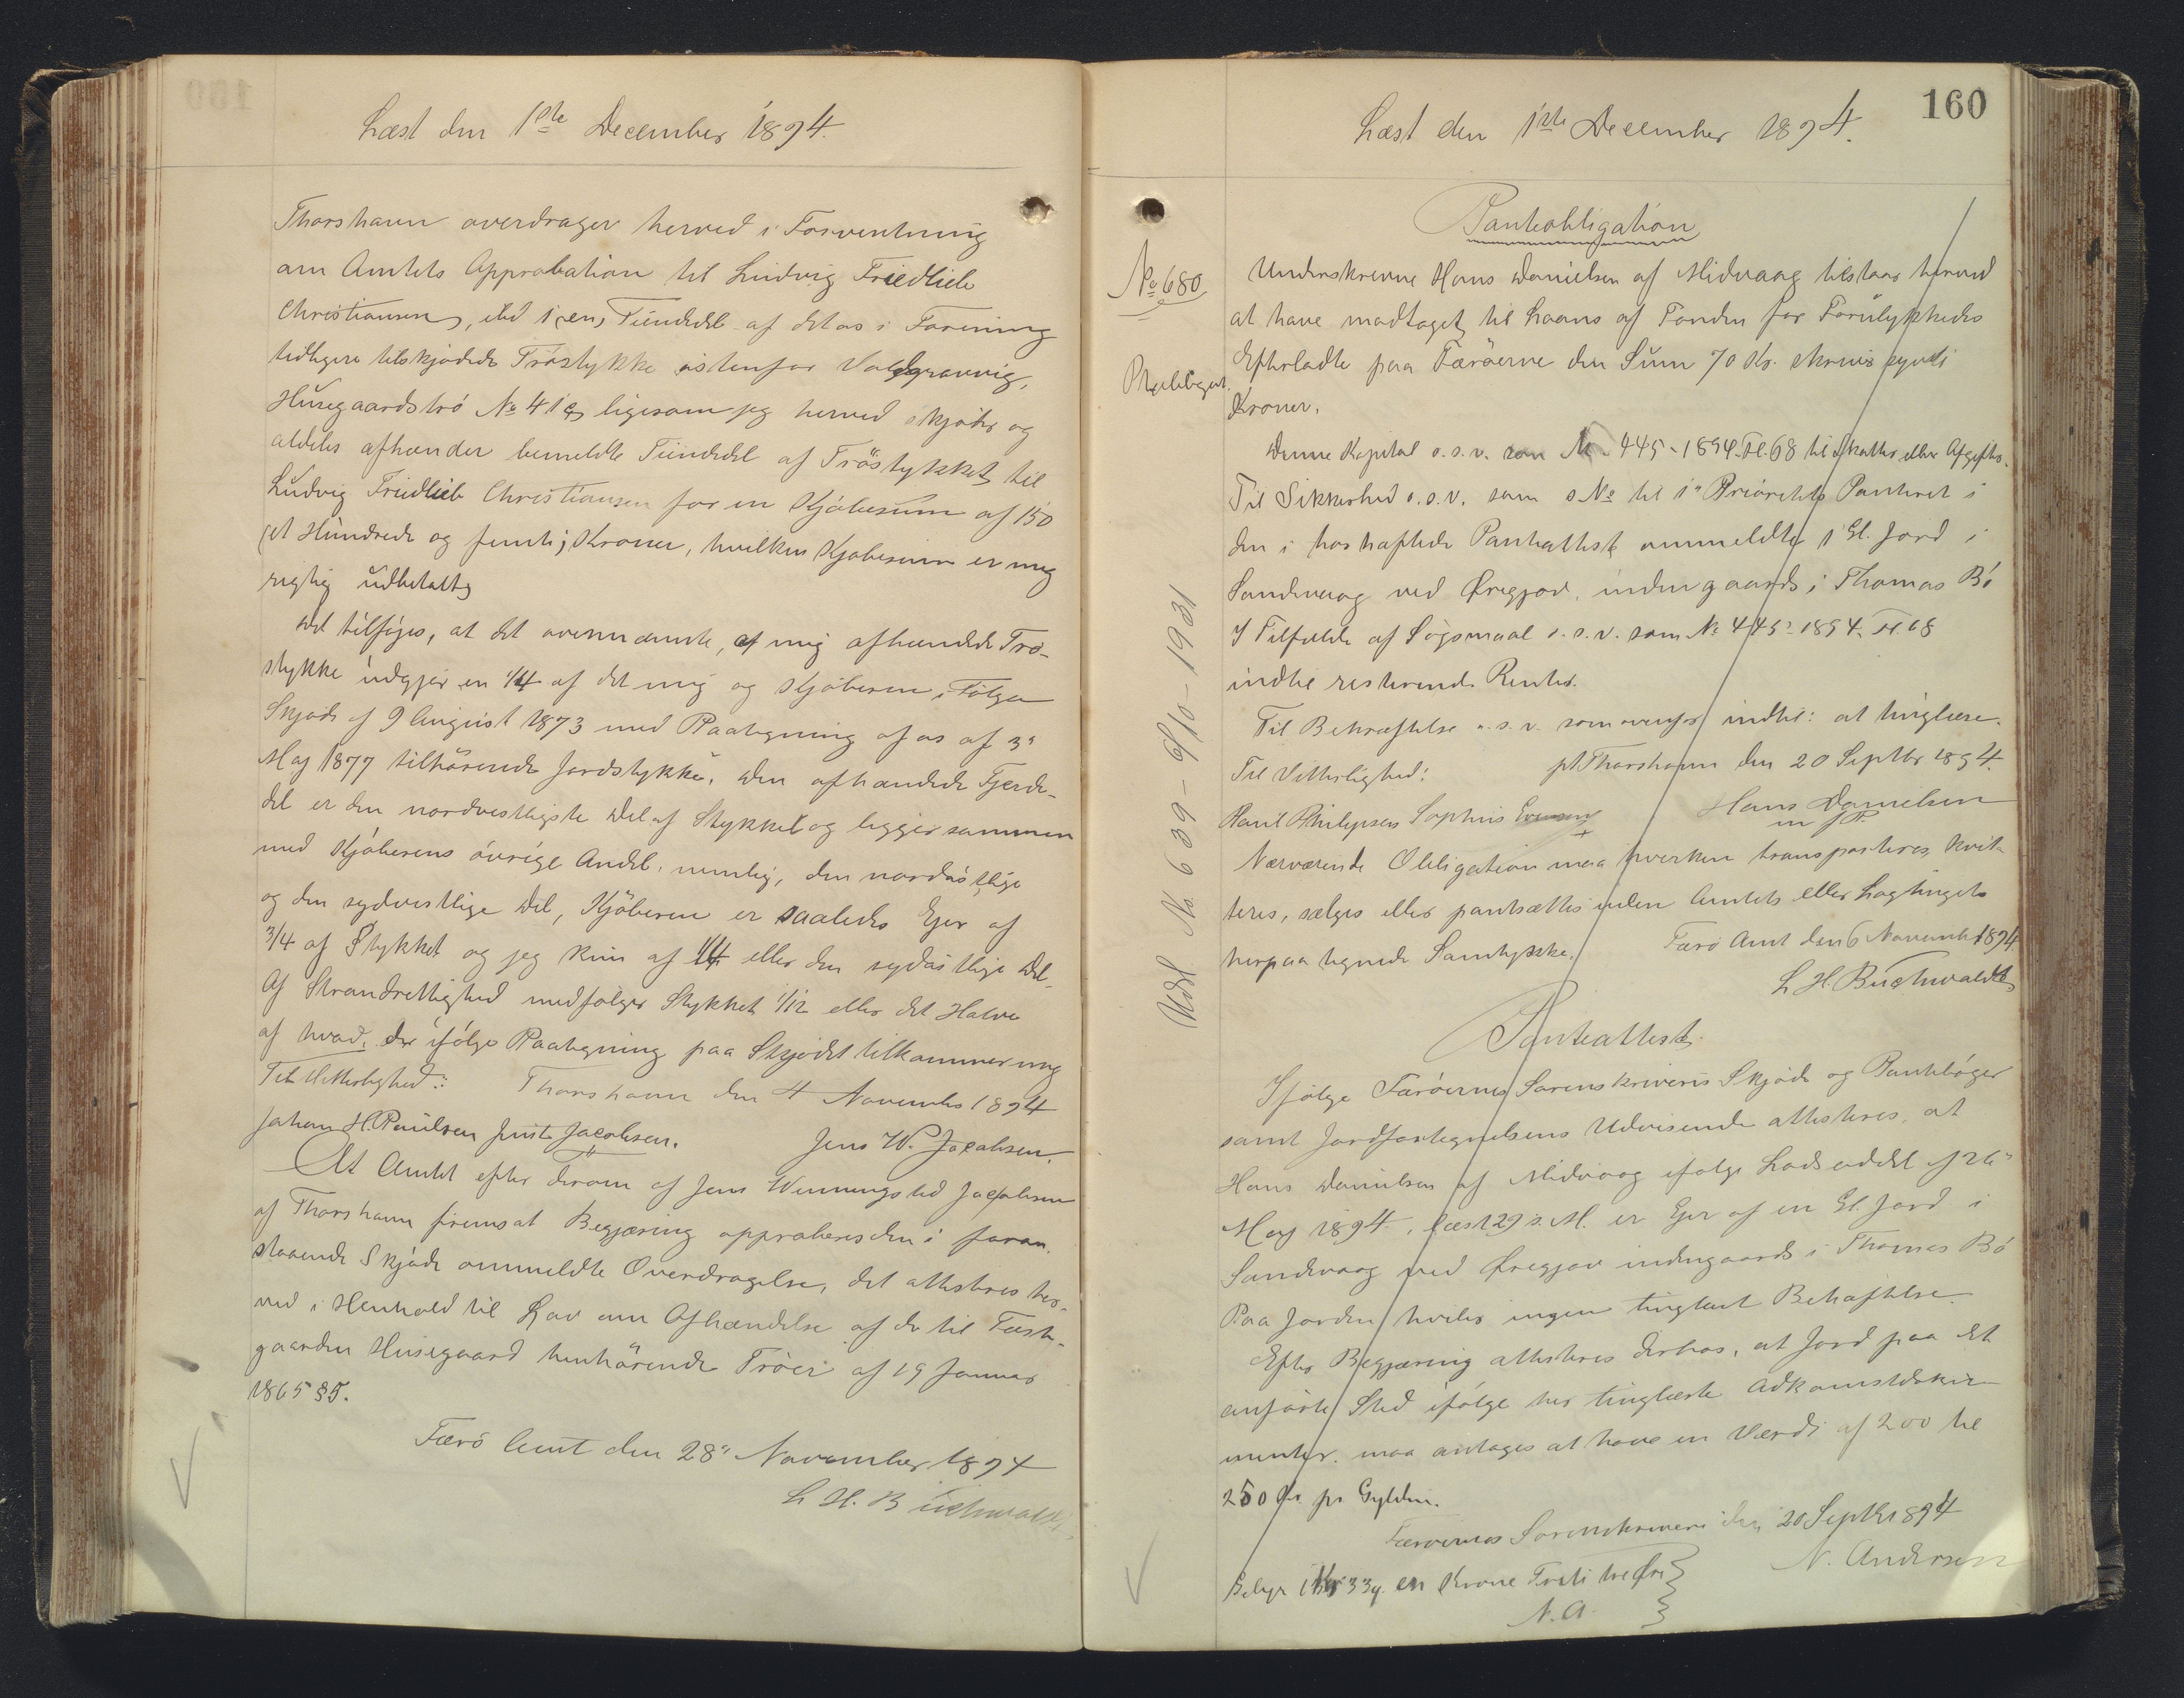 Læst den 1ste December 1894.
Thorshavn overdrager herved i Forventning
om Amtets Approbation til Ludvig Friedlieb
Christiansen, eet 1 (en) Tiendedel af det os i Forening
tidligere tilskjødede Tröstykke östenfor
Husegaardströ № 41 ligesom jeg herved skjøder og
aldeles afhænder bemeldte Tiendedel af Tröstykket til
Ludvig Friedlieb Christiansen for en Kjøbesum af 150
(et Hundrede og femti) Kroner, hvilken Kjøbesum er mig
rigtig udbetalt.
Det tilføjes, at det ovennævnte, af mig afhændede Trö-
stykke udgjør en 1/4 af det mig og Kjøberen i Følge
Skjøde af 9 August 1873 med Paategning af os af 3"
Maj 1877 tilhørende Jordstykke. Den afhændede Fjerde-
del er den nordvestligste Del af Stykket og ligger sammen
med Kjøberens øvrige Andel, nemlig, den nordöstlige
og den sydvestlige Del, Kjøberen er saaledes Ejer af
3/4 af Stykket og jeg kun af 1/4 eller den sydöstlige Del.
Af Strandrettighed medfølger Stykket 1/12 eller det Halve
af hvad, der ifølge Paategning paa Skjødet tilkommer mig
Til Vitterlighed: Thorshavn den 4 November 1894
Johan H. Poulsen Just Jacobsen. Jens W. Jacobsen.
At Amtet efter derom af Jens Wenningsted Jacobsen
af Thorshavn fremsat Begjæring approberer den i foran-
staaende Skjøde ommeldte Overdragelse, det attesteres her-
ved i Henhold til Lov om Afhændelse af de til Fæste-
gaarden Husegaard henhørende Tröer af 19 Januar
1865 § 5.
Færö Amt den 28" November 1894
L. H. Buchwaldt
160
Læst den 1ste December 1894.
Panteobligation
№ 680
Underskrevne Hans Danielsen af Midvaag tilstaar herved
at have modtaget til Laans af Fonden for Forulykkedes
Efterladte paa Færöerne den Sum 70 Kr. skriver syvti
Kroner.
Denne Kapital o.s.v. som № 445-1894 Fl. 68 til Skatter eller Afgifter.
Til Sikkerhed o.s.v. som s № til 1" Prioritets Panteret i
den i hoshæftede Panteattest ommeldte 1 Gl. Jord i
Sandevaag ved Øregjov, indengaards i Thomas Bö
I Tilfælde af Søgsmaal o.s.v. som № 445-1894 Fl. 68
indtil resterende Renter.
Til Bekræftelse o.s.v. som ovenfor indtil: at tinglæse.
pt Thorshavn den 20 Septbr 1894.
Til Vitterlighed:
Poul Philipsen Sophus Evensen Hans Danielsen
m f P.
Nærværende Obligation maa hverken transporteres, kvit-
teres, sælges eller pantsættes uden Amtets eller Lagtingets
herpaa tegnede Samtykke.
Færö Amt den 6 November 1894
L H. Buchwaldt
Udsl № 639 - 6/10 - 1931
Panteattest.
Ifølge Færöernes Sorenskriveris Skjøde og Pantebøger
samt Jordfortegnelsens Udvisende attesteres, at
Hans Danielsen af Midvaag ifølge Lodseddel af 26"
Maj 1894, læst 29 s. M. er Ejer af en Gl. Jord i
Sandevaag ved Øregjov indengaards i Thomas Bö
Paa Jorden hviler ingen tinglæst Behæftelse.
Efter Begjæring attesteres derhos, at Jord paa det
anførte Sted ifølge her tinglæste Adkomstdoku-
menter, maa antages at have en Værdi af 200 til
250 Kr pr Gylden.
Færöernes Sorenskriveri den 20 Septbr 1894
N. Andersen
Gebyr 1 Kr 33 Ø. en Krone Treti tre Øre
N. A.